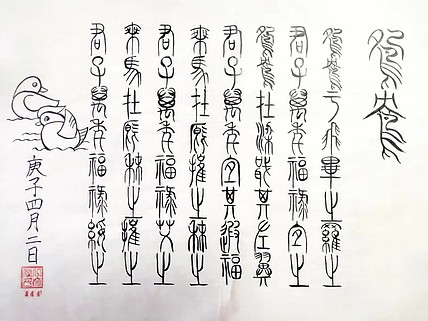 鴛鴦
鴛鴦于飛畢之羅之
君子萬年福祿宜之
鴛鴦在梁戢其左翼
君子萬年宜其遐福
乘馬在廄摧之秣之
君子萬年福祿艾之
乘馬在廄秣之摧之
君子萬年福祿綏之
庚子四月二日